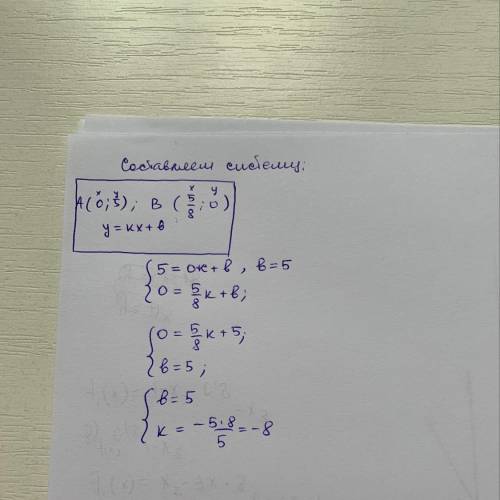 Составляем систему:
x y x y
A(0;5); B (5/8;0)
y=kx+b
{5=0k+b, b=5
0=5/8k+b;
{0=5/8k+5;
b=5;
{b=5
k=-5·8/5=-8